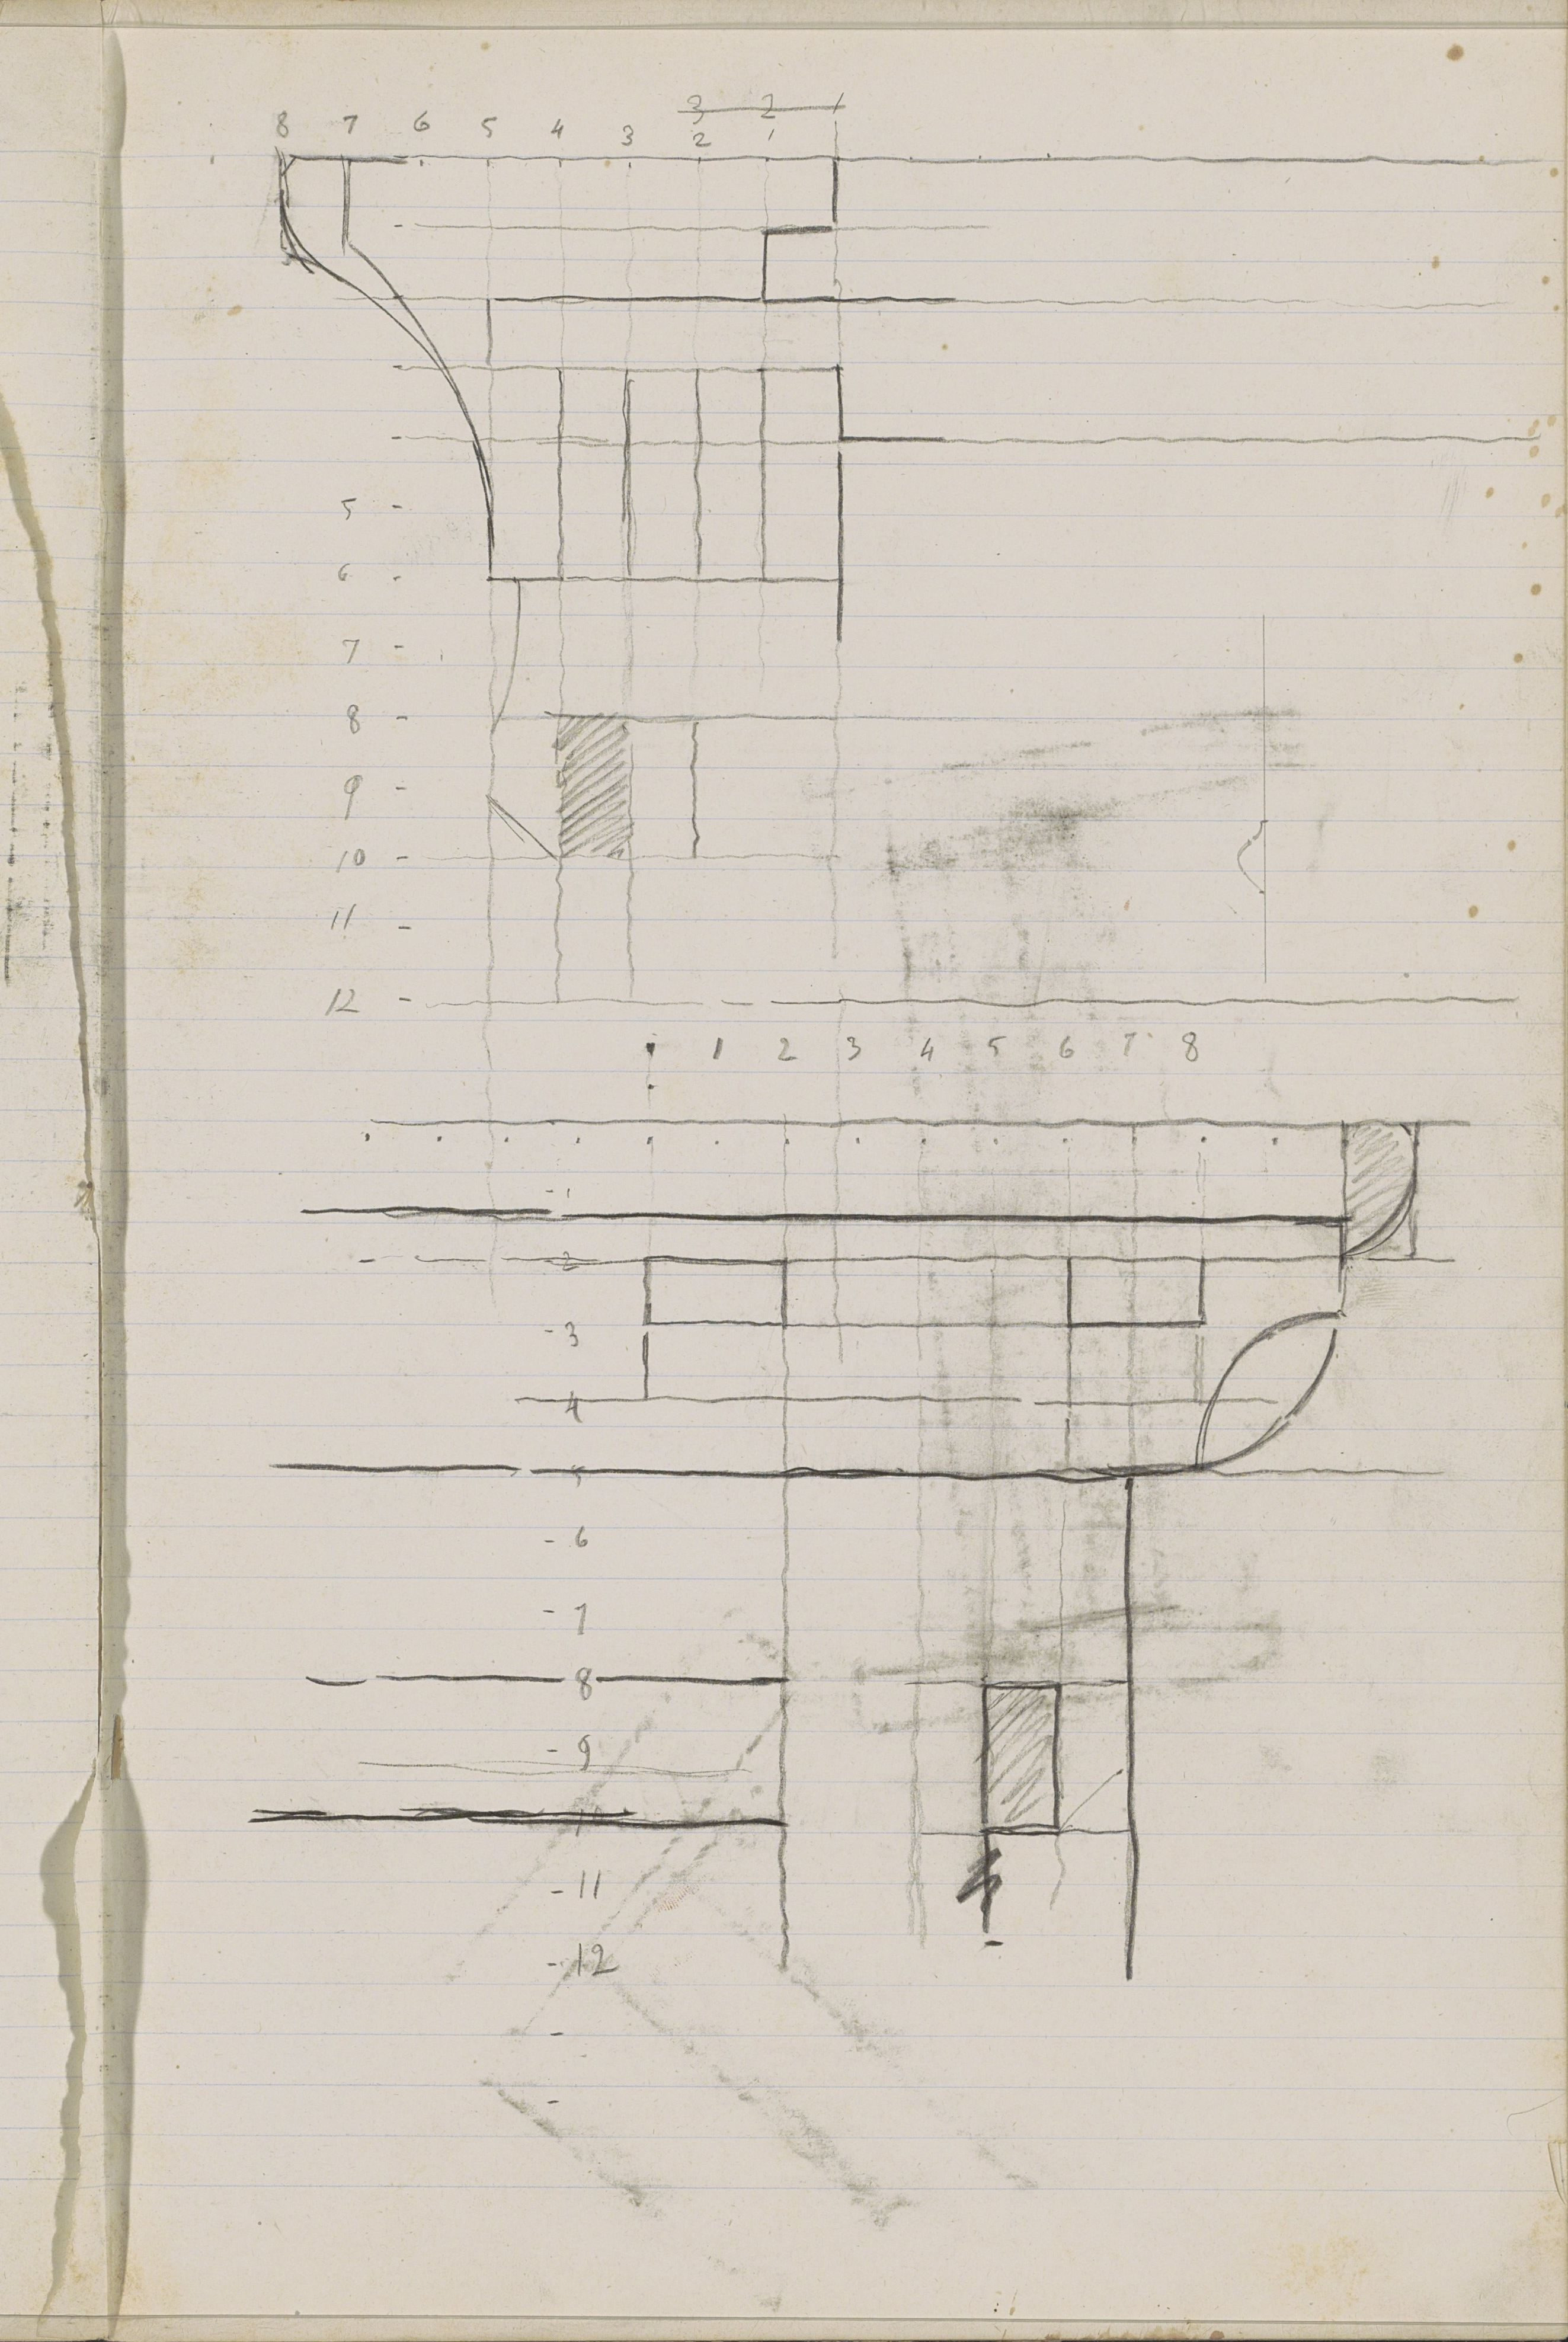 3 2 1
8 7 6 5 4 3 2 1
5
6
7
8
9
10
11
12
1 2 3 4 5 6 7 8
1
2
3
4
5
6
7
8
9
10
11
12